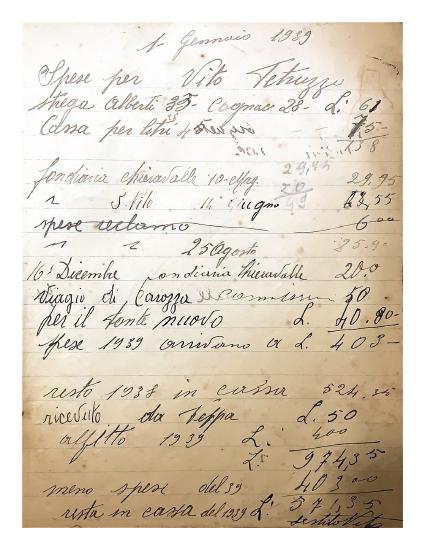 1- Gennaio 1939
Spese per Vito Petruzzo
Strega Alberti 33- Cognac 28- L: 61
Cassa per litri 45 75-
138
29,95
fondiaria chiaravalle 10-
20
29,95
" S. Vito 14 Giugno 49
spese reclamo 6 00
" " 25 Agosto 85.90
16 Dicembre fondiaria Chiaravalle 20.0
viagio di Carozza 50
per il fonte nuovo L. 40.80-
spese 1939 a L. 403-
resto 1938 in cassa 524,35
ricevuto da Peppa L. 50
affitto 1939 L: 400
L: 974,35
meno spese del 39 403 00
resta in cassa del 1939 L: 571,35